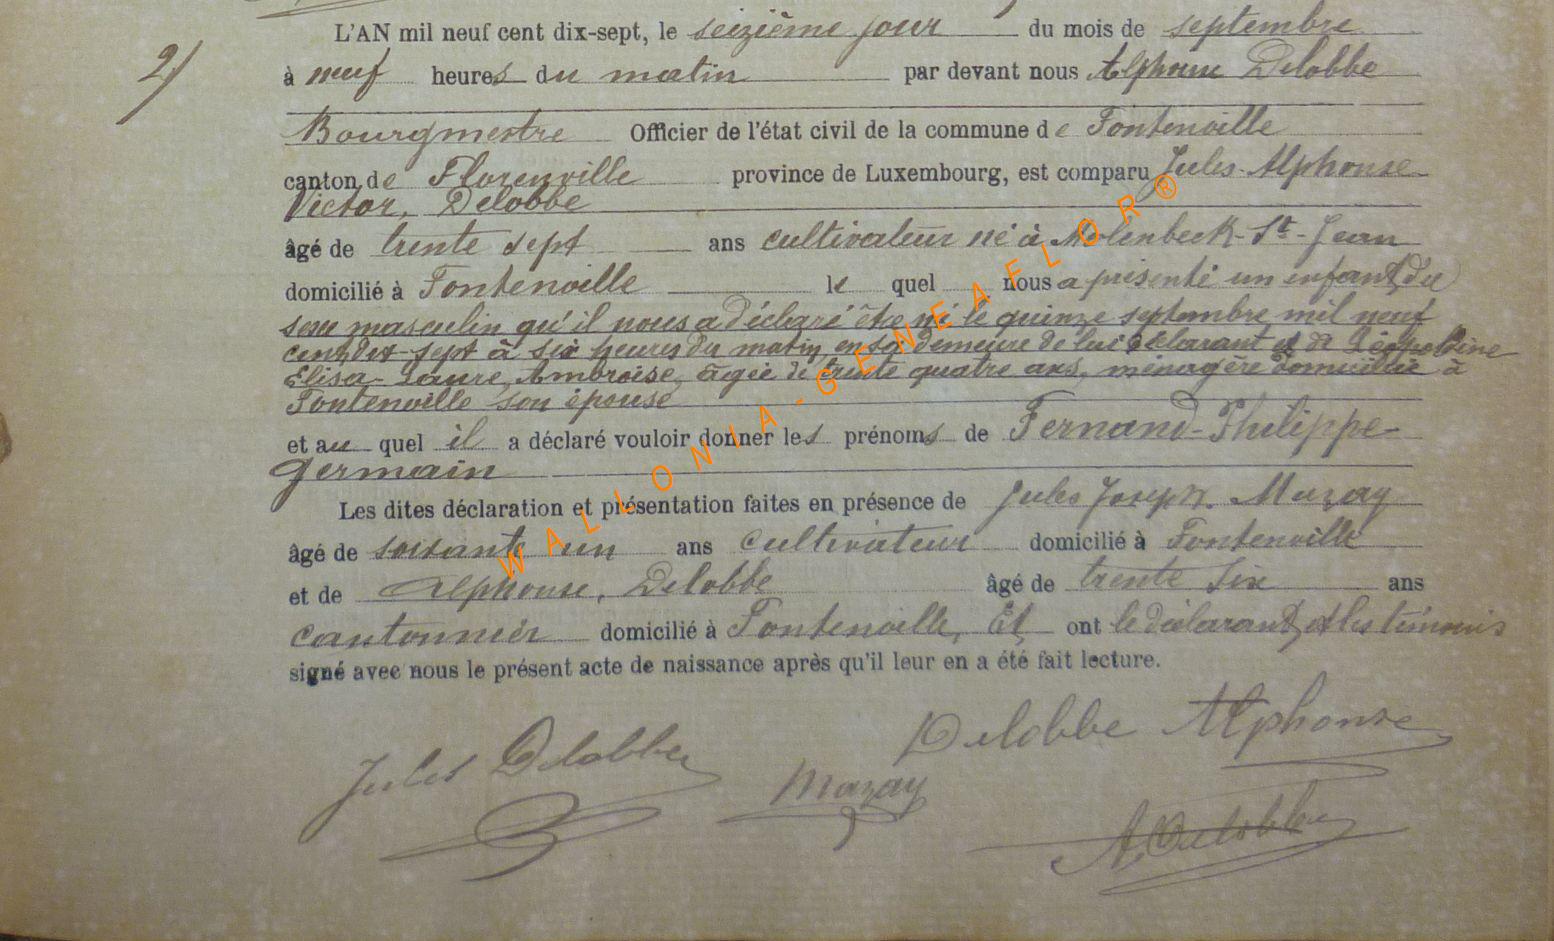 2/
L'AN mil neuf cent dix-sept, le seizième jour du mois de septembre
à neuf heures du matin par devant nous Alphonse Delobbe
Bourgmestre Officier de l'état civil de la commune de Fontenoille
canton de Florenville province de Luxembourg, est comparu Jules-Alphonse
Victor, Delobbe
âgé de trente sept ans cultivateur né à Molenbeck-St-Jean
domicilié à Fontenoille le quel nous a présenté un enfant du
sexe masculin qu'il nous a déclaré être né le quinze septembre mil neuf
cent dix-sept à six heures du matin, en sa demeure de lui déclarant et de Léopoldine
Elisa-Laure, Ambroise, âgée de trente quatre ans, ménagère domiciliée à
Fontenoille son épouse
et au quel il a déclaré vouloir donner les prénoms de Fernand-Philippe-
Germain
Les dites déclaration et présentation faites en présence de Jules Joseph. Mazay
âgé de soixante un ans cultivateur domicilié à Fontenoille
et de Alphonse, Delobbe âgé de trente six ans
cantonnier domicilié à Fontenoille, Et ont le déclarant, et les témoins
signé avec nous le présent acte de naissance après qu'il leur en a été fait lecture.
Jules Delobbe
Mazay
Delobbe Alphonse
A. Delobbe
WALLONIA-GENEAFLOR®